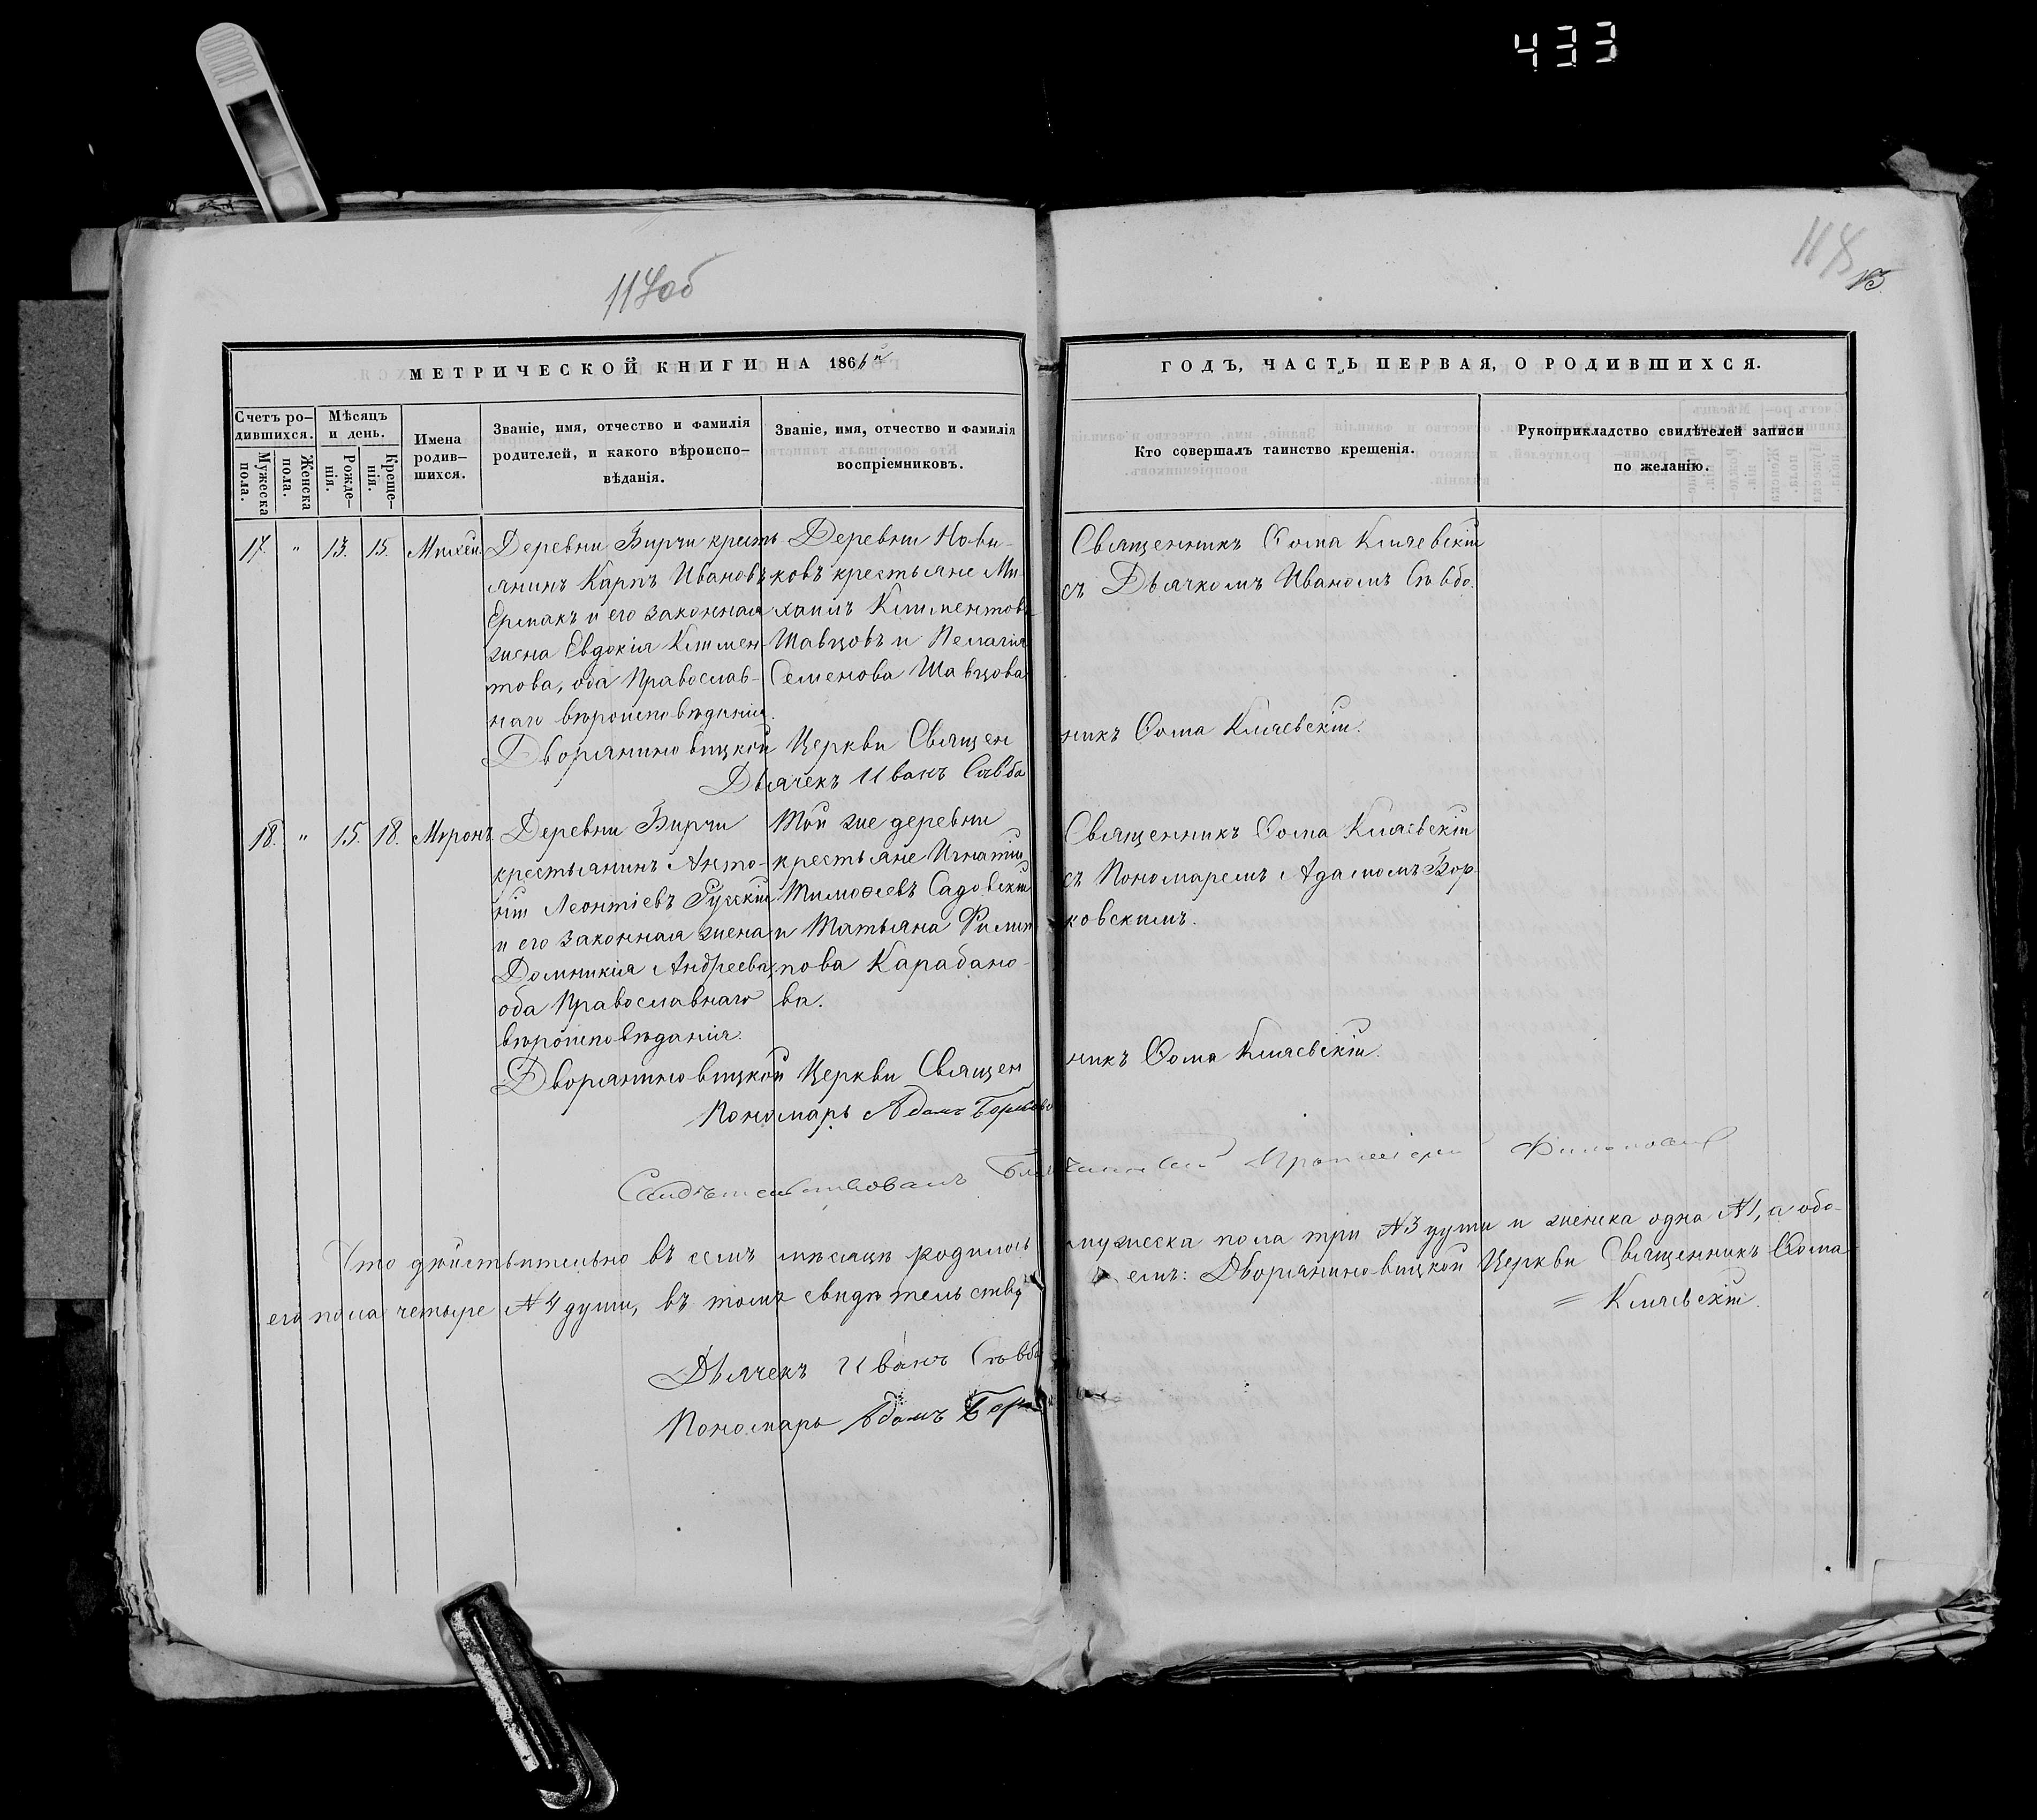 433
117об
118
МЕТРИЧЕСКОЙ КНИГИ НА 1866й
ГОДЪ, ЧАСТЬ ПЕРВАЯ, О РОДИВШИХСЯ.
Счетъ ро-
дившихся.
Мужеска
пола.
Женска
пола.
Мѣсяцъ
и день.
Рожде-
нія.
Креще-
нія.
Имена
родив-
шихся.
Званіе, имя, отчество и фамилія
родителей, и какого вѣроиспо-
вѣданія.
Званіе, имя, отчество и фамилія
воспріемниковъ.
Кто совершалъ таинство крещенія.
Рукоприкладство свидѣтелей записи
по желанію.
17. " 13. 15. Михей
Деревни Бирчи кресть
янинъ Карпъ Ивановъ
Ермакъ и его законная
жена Евдокія Климен-
това, оба Православ-
наго вѣроисповѣданія.
Деревни Нови-
ковъ крестьяне Ми-
хаилъ Климентовъ
Шавцовъ и Пелагія
Семенова Шавцова
Священникъ Ѳома Кляевскій
съ Дьячкомъ Иваномъ Савбо.
Дворяниновицкой Церкви Священ
никъ Ѳома Кляевскій.
Дьячекъ Иванъ Савбо
18. " 15. 18. Миронъ
Деревни Бирчи
крестьянинъ Анто-
ній Леонтіевъ Гусскій
и его законная жена
Домникія Андреева,
оба Православнаго
вѣроисповѣданія.
Той же деревни
крестьяне Игнатій
Тимоѳеевъ Садовскій
и Татьяна Филип
пова Карабано-
ва.
Священникъ Ѳома Кляевскій
съ Пономаремъ Адамомъ Бор
ковскимъ.
Дворяниновицкой Церкви Священ
никъ Ѳома Кляевскій.
Пономарь Адамъ Борковс
Свидѣтельствовалъ Благочинный Протоіерей
Что дѣйствительно въ семъ мѣсяцѣ родилось мужеска пола три №3 души и женска одна №1, а обо-
его пола четыре №4 души, въ томъ свидѣтельству емъ: Дворяниновицкой Церкви Священникъ Ѳома
Кляевскій.
Дьячекъ Иванъ Савбо
Пономарь Адамъ